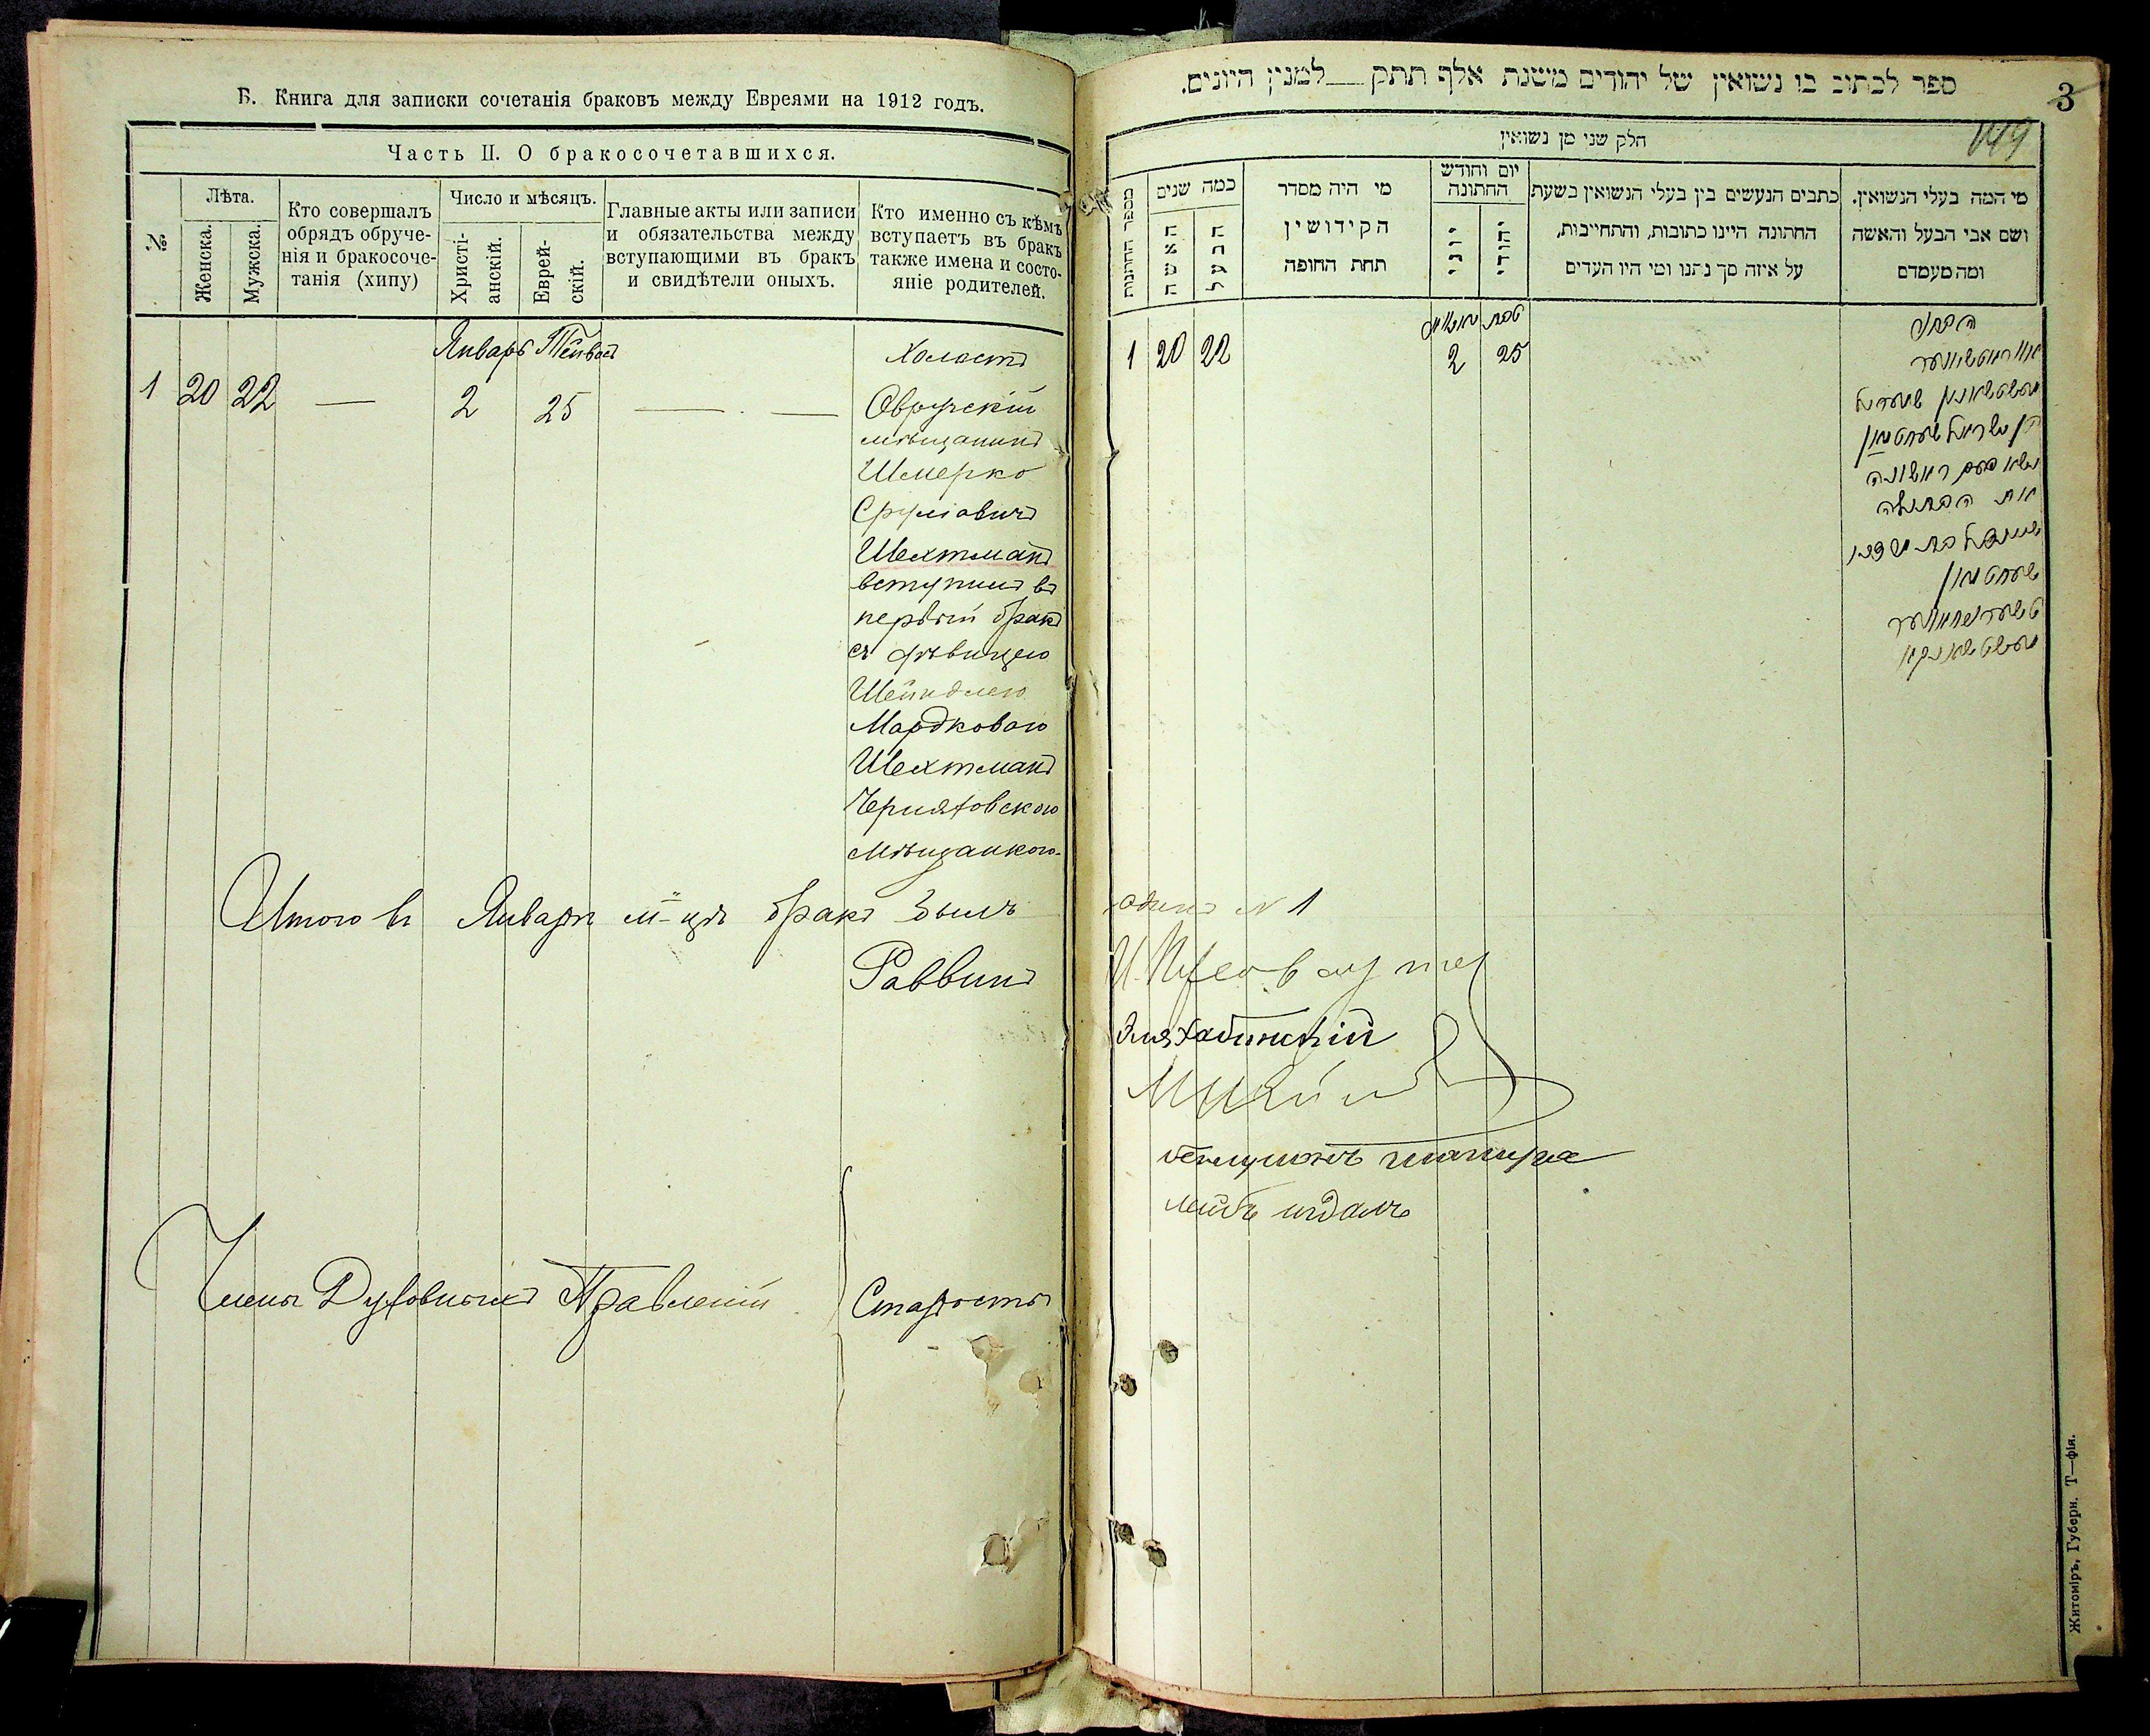 Б. Книга для записки сочетанія браковъ между Евреями на 1912 годъ.
Часть II. О бракосочетавшихся.
№
Лѣта.
Женска.
Мужска.
Кто совершалъ
обрядъ обруче-
нія и бракосоче-
танія (хипу)
Число и мѣсяцъ.
Христі-
анскій.
Еврей-
скій.
Главные акты или записи
и обязательства между
вступающими въ бракъ
и свидѣтели оныхъ.
Кто именно съ кѣмъ
вступаетъ въ бракъ
также имена и состо-
яніе родителей.
Январь Тейвес
1 20 22 — 2 25 — —
Холостъ
Овручскій
мѣщанинъ
Шмерко
Сруліовичъ
Шехтманъ
вступилъ въ
первый бракъ
съ дѣвицею
Шейндлею
Мардковою
Шехтманъ
Черняховскою
мѣщанкою.
Итого въ Январѣ м-цѣ бракъ былъ
Раввинъ
Члены Духовныхъ Правленій
Старосты
ספר לכתוב בו נשואין של יהודים משנת אלף תתק__למנין היונים.
3
149
חלק שני מן נשואין
מספר החתונות
כמה שנים
האשה
הבעל
מי היה מסדר
הקידושין
תחת החופה
יום וחודש
החתונה
יוני
יהודי
כתבים הנעשים בין בעלי הנשואין בשעת
החתונה היינו כתובות, והתחייבות,
על איזה סך נתנו ומי היו העדים
מי המה בעלי הנשואין.
ושם אבי הבעל והאשה
ומה מעמדם
יאנואר טבת
1 20 22 2 25
הבחור
שמערל
בן ישראל שעכטמאן
נשא פעם ראשונה
את הבתולה
שיינדל בת מרדכי
שעכטמאן
одинъ № 1
шапира
лейбъ
Житоміръ, Губерн. Т—фія.